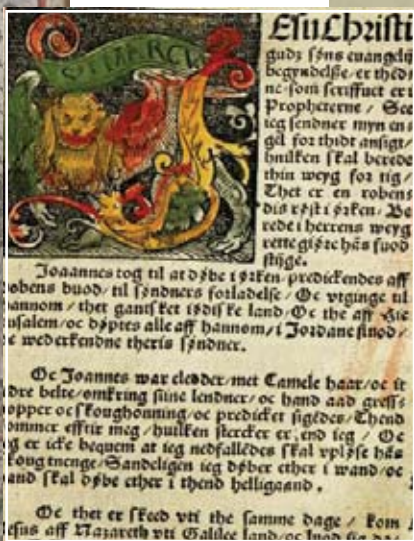 S. MARCV
Esu Christi
gudz søns euangelij
begyndelße / er thēd
ne som scriffuet er i
Propheterne / See
ieg sendner myn en
gel for thidt ansigt /
huilken skal berede
thin weyg for tig /
Thet er en robens
dis røst i ørken / Be
rede i herrens weyg
rette giøre hās fuod
stiige.
Joaannes tog til at døbe i ørken / predickendes aff
obens buod / til syndners forladelse / Oc vtginge til
annom / thet gantsket iødiske land / Oc the aff Hie
usalem / oc døptes alle aff hannom / i Jordane flnod /
e wederkendne theris syndner.
Oc Joannes war cledder / met Camele haar / oc it
dre belte / omkring siine lendner / oc hand aad gress
opper oc skoughonning / oc predicket sigēdes / Thend
ommer efftir meg / huilken stercker er / end ieg / Oc
g er icke bequem at ieg nedfallēdes skal vpløse hās
koug tnenge / Sandeligen ieg døber ether i wand / oc
and skal døbe ether i thend helligaand.
Oc thet er skeed vti the samme dage / kom
esus aff Nazareth vti Galilee land / oc